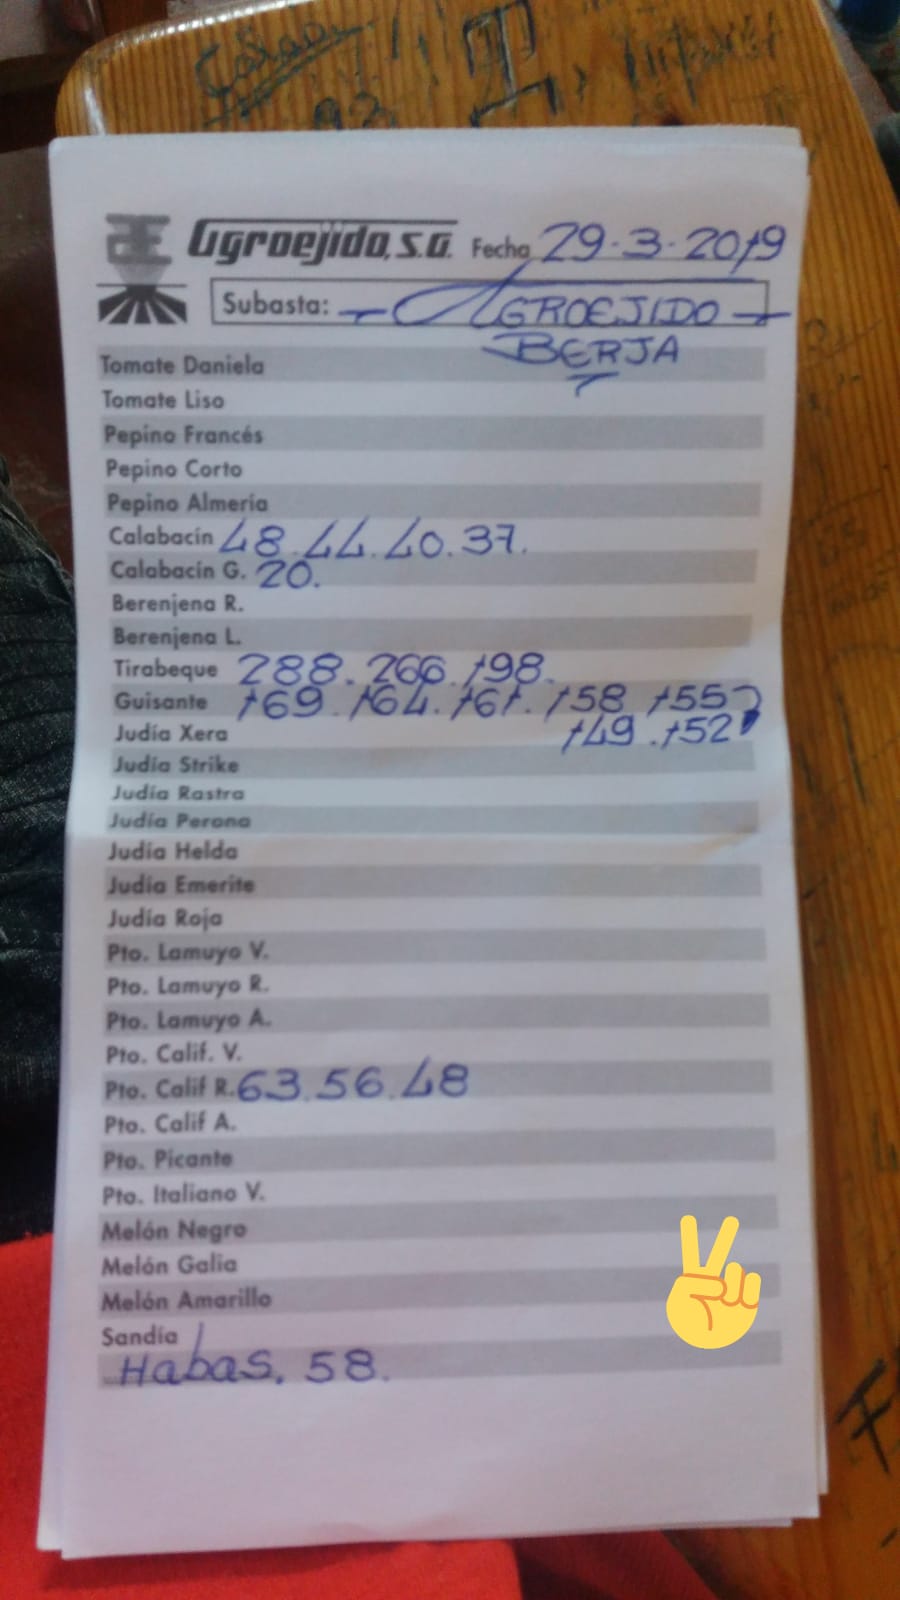 Agroejido, S.A. Fecha 29-3-2019
Subasta: AGROEJIDO
BERJA
Tomate Daniela
Tomate Liso
Pepino Francés
Pepino Corto
Pepino Almería
Calabacín 48.44.40.37.
Calabacín G. 20.
Berenjena R.
Berenjena L.
Tirabeque 288.266.198.
Guisante 169.164.161.158.155
Judía Xera 149.152
Judía Strike
Judía Rastra
Judía Perona
Judía Helda
Judía Emerite
Judía Roja
Pto. Lamuyo V.
Pto. Lamuyo R.
Pto. Lamuyo A.
Pto. Calif. V.
Pto. Calif R. 63.56.48
Pto. Calif A.
Pto. Picante
Pto. Italiano V.
Melón Negro
Melón Galia
Melón Amarillo
Sandía
Habas. 58.